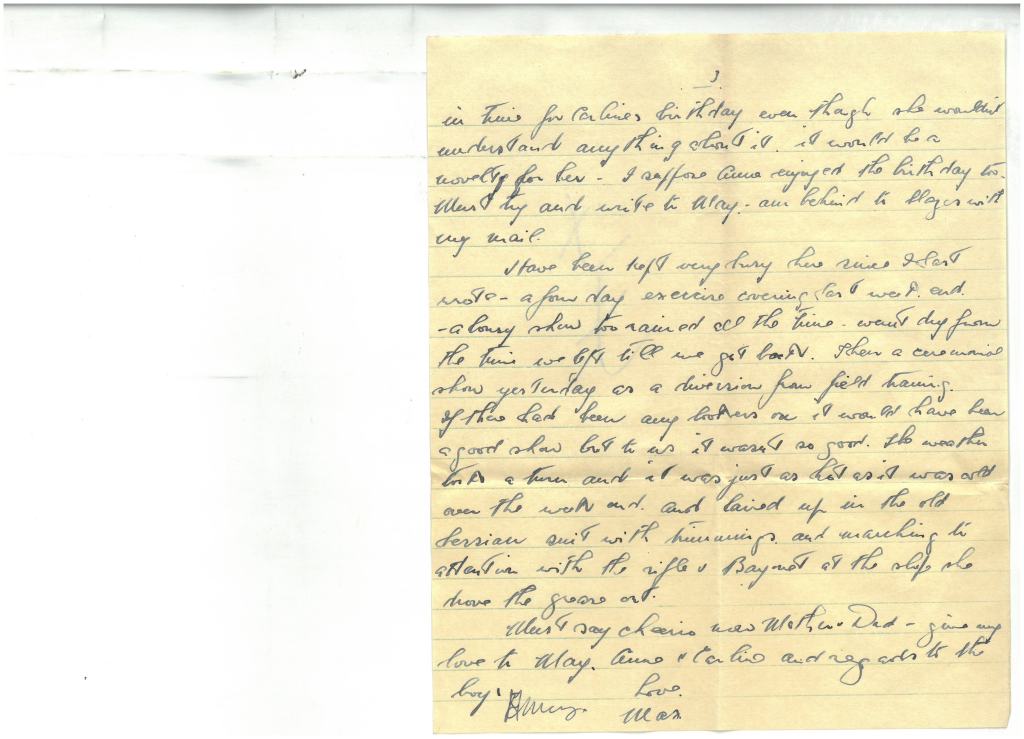 3.
in time for Carlines birthday even though she wouldn't
understand anything about it. it would be a
novelty for her - I suppose Anne enjoyed the birthday too.
Must try and write to May - am behind to blazes with
my mail.
Have been kept very busy here since I last
wrote - a four day exercise covering last week. end.
- a lousy show too rained all the time - wasn't dry from
the time we left till we got back. Then a ceremonial
show yesterday as a diversion from field training.
If there had been any lookers on it would have been
a good show but to us it wasn't so good. The weather
took a turn and it was just as hot as it was cold
over the week end. and laired up in the old
suit with trimmings. and marching to
attention with the rifle & Bayonet at the slope she
drove the grease out.
Must say cheerio now Mother & Dad - give my
love to May. Anne & Carline and regards to the
boy.
Love.
Max.